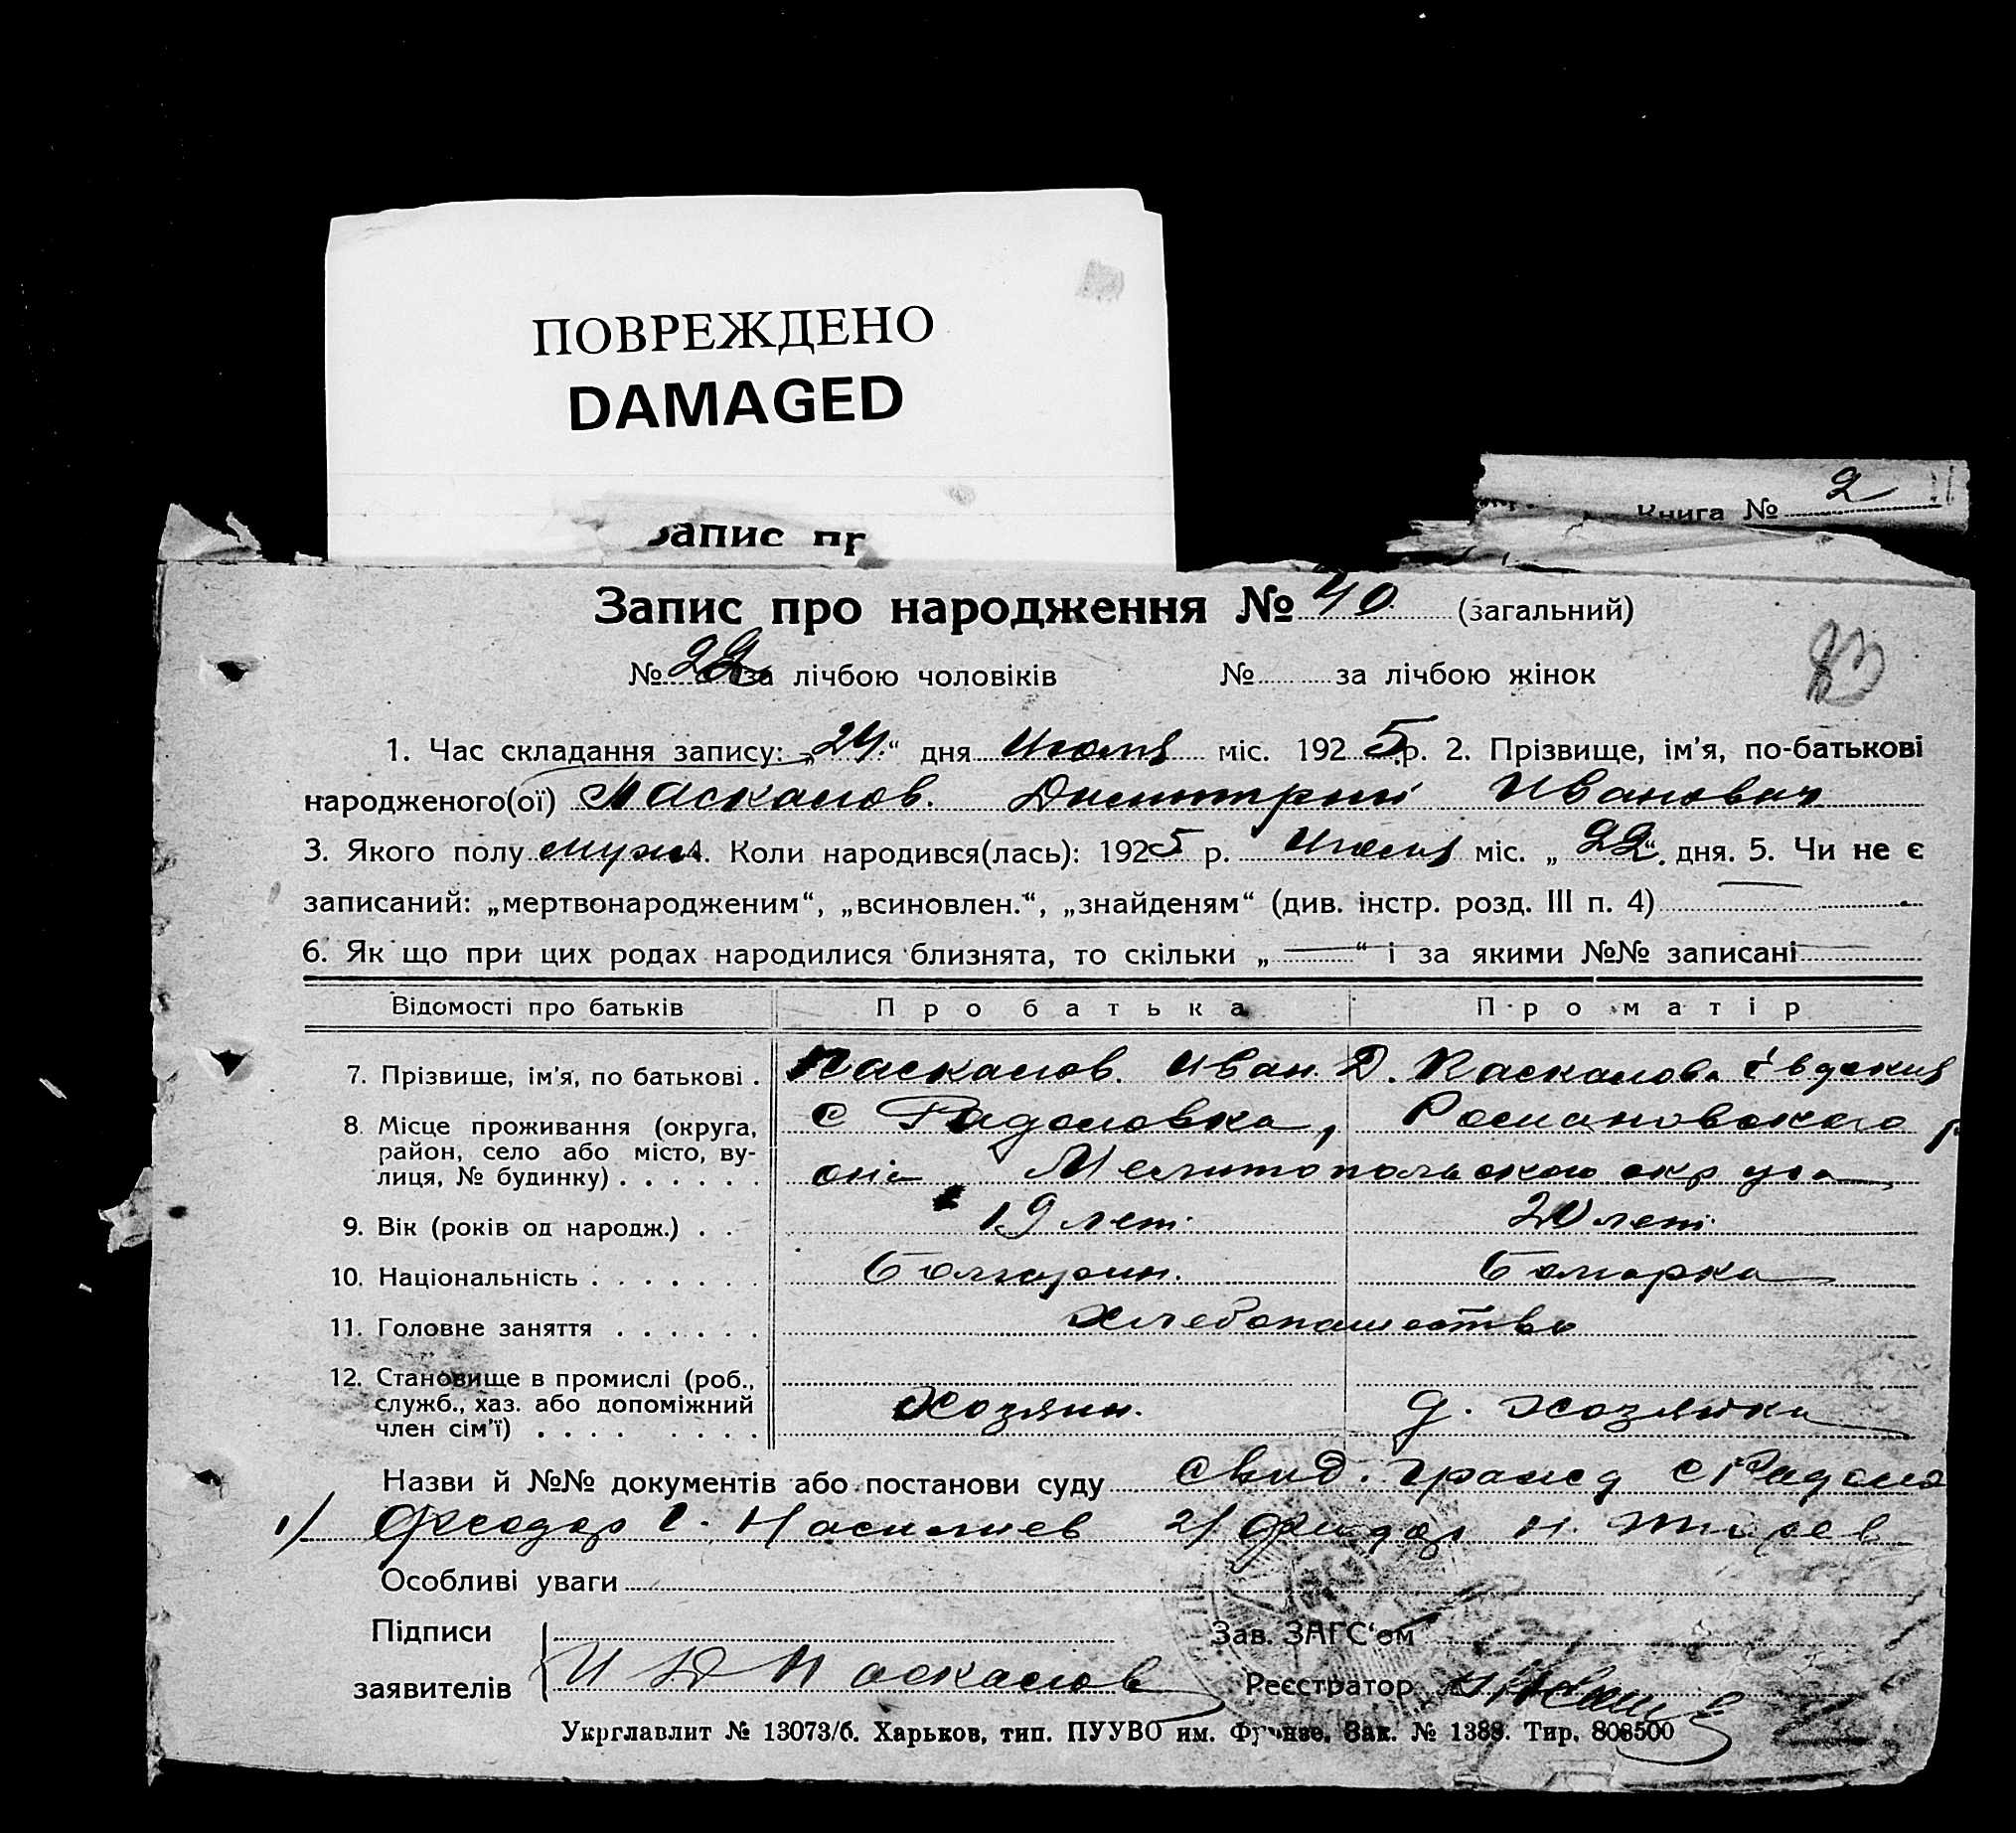 ПОВРЕЖДЕНО
DAMAGED
Запис пр
Книга № 2
Запис про народження № 40 (загальний)
№ 22 за лічбою чоловіків № за лічбою жінок
1. Час складання запису: „24“ дня Июля міс. 1925 р. 2. Прізвище, ім'я, по-батькові
народженого(ої) Паскалов Димитрий Иванович
3. Якого полу муж 4. Коли народився(лась): 1925 р. Июля міс. „22“ дня. 5. Чи не є
записаний: „мертвонародженим“, „всиновлен.“, „знайденям“ (див. інстр. розд. III п. 4)
6. Як що при цих родах народилися близнята, то скільки „ “ і за якими №№ записані
Відомості про батьків Про батька Про матір
7. Прізвище, ім'я, по батькові . Паскалов Иван Д. Паскалова Евдокия
8. Місце проживання (округа, с Радоловка, Романовского р
район, село або місто, ву-
лиця, № будинку) . . . . . . она Мелитопольского округа
9. Вік (років од народж.) . . 19 лет. 20 лет.
10. Національність . . . . . . . болгарин. болгарка
11. Головне заняття . . . . . . Хлебопашество
12. Становище в промислі (роб.,
служб., хаз. або допоміжний Хозяин. д. хозяйка
член сім'ї) . . . . . . . .
Назви й №№ документів або постанови суду Свид. гражд с Радоло
1/ Феодор 2/ Феодор Н.
Особливі уваги
Підписи Зав. ЗАГС'ом
заявителів И Д Паскалов Реєстратор
Укрглавлит № 13073/б. Харьков, тип. ПУУВО им. Фрунзе, Зак. № 1388. Тир. 808500